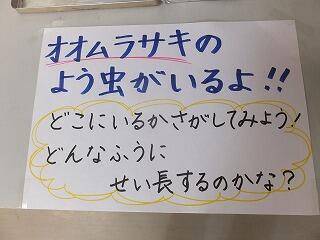 オオムラサキの
よう虫がいるよ!!
どこにいるかさがしてみよう!
どんなふうに
せい長するのかな?